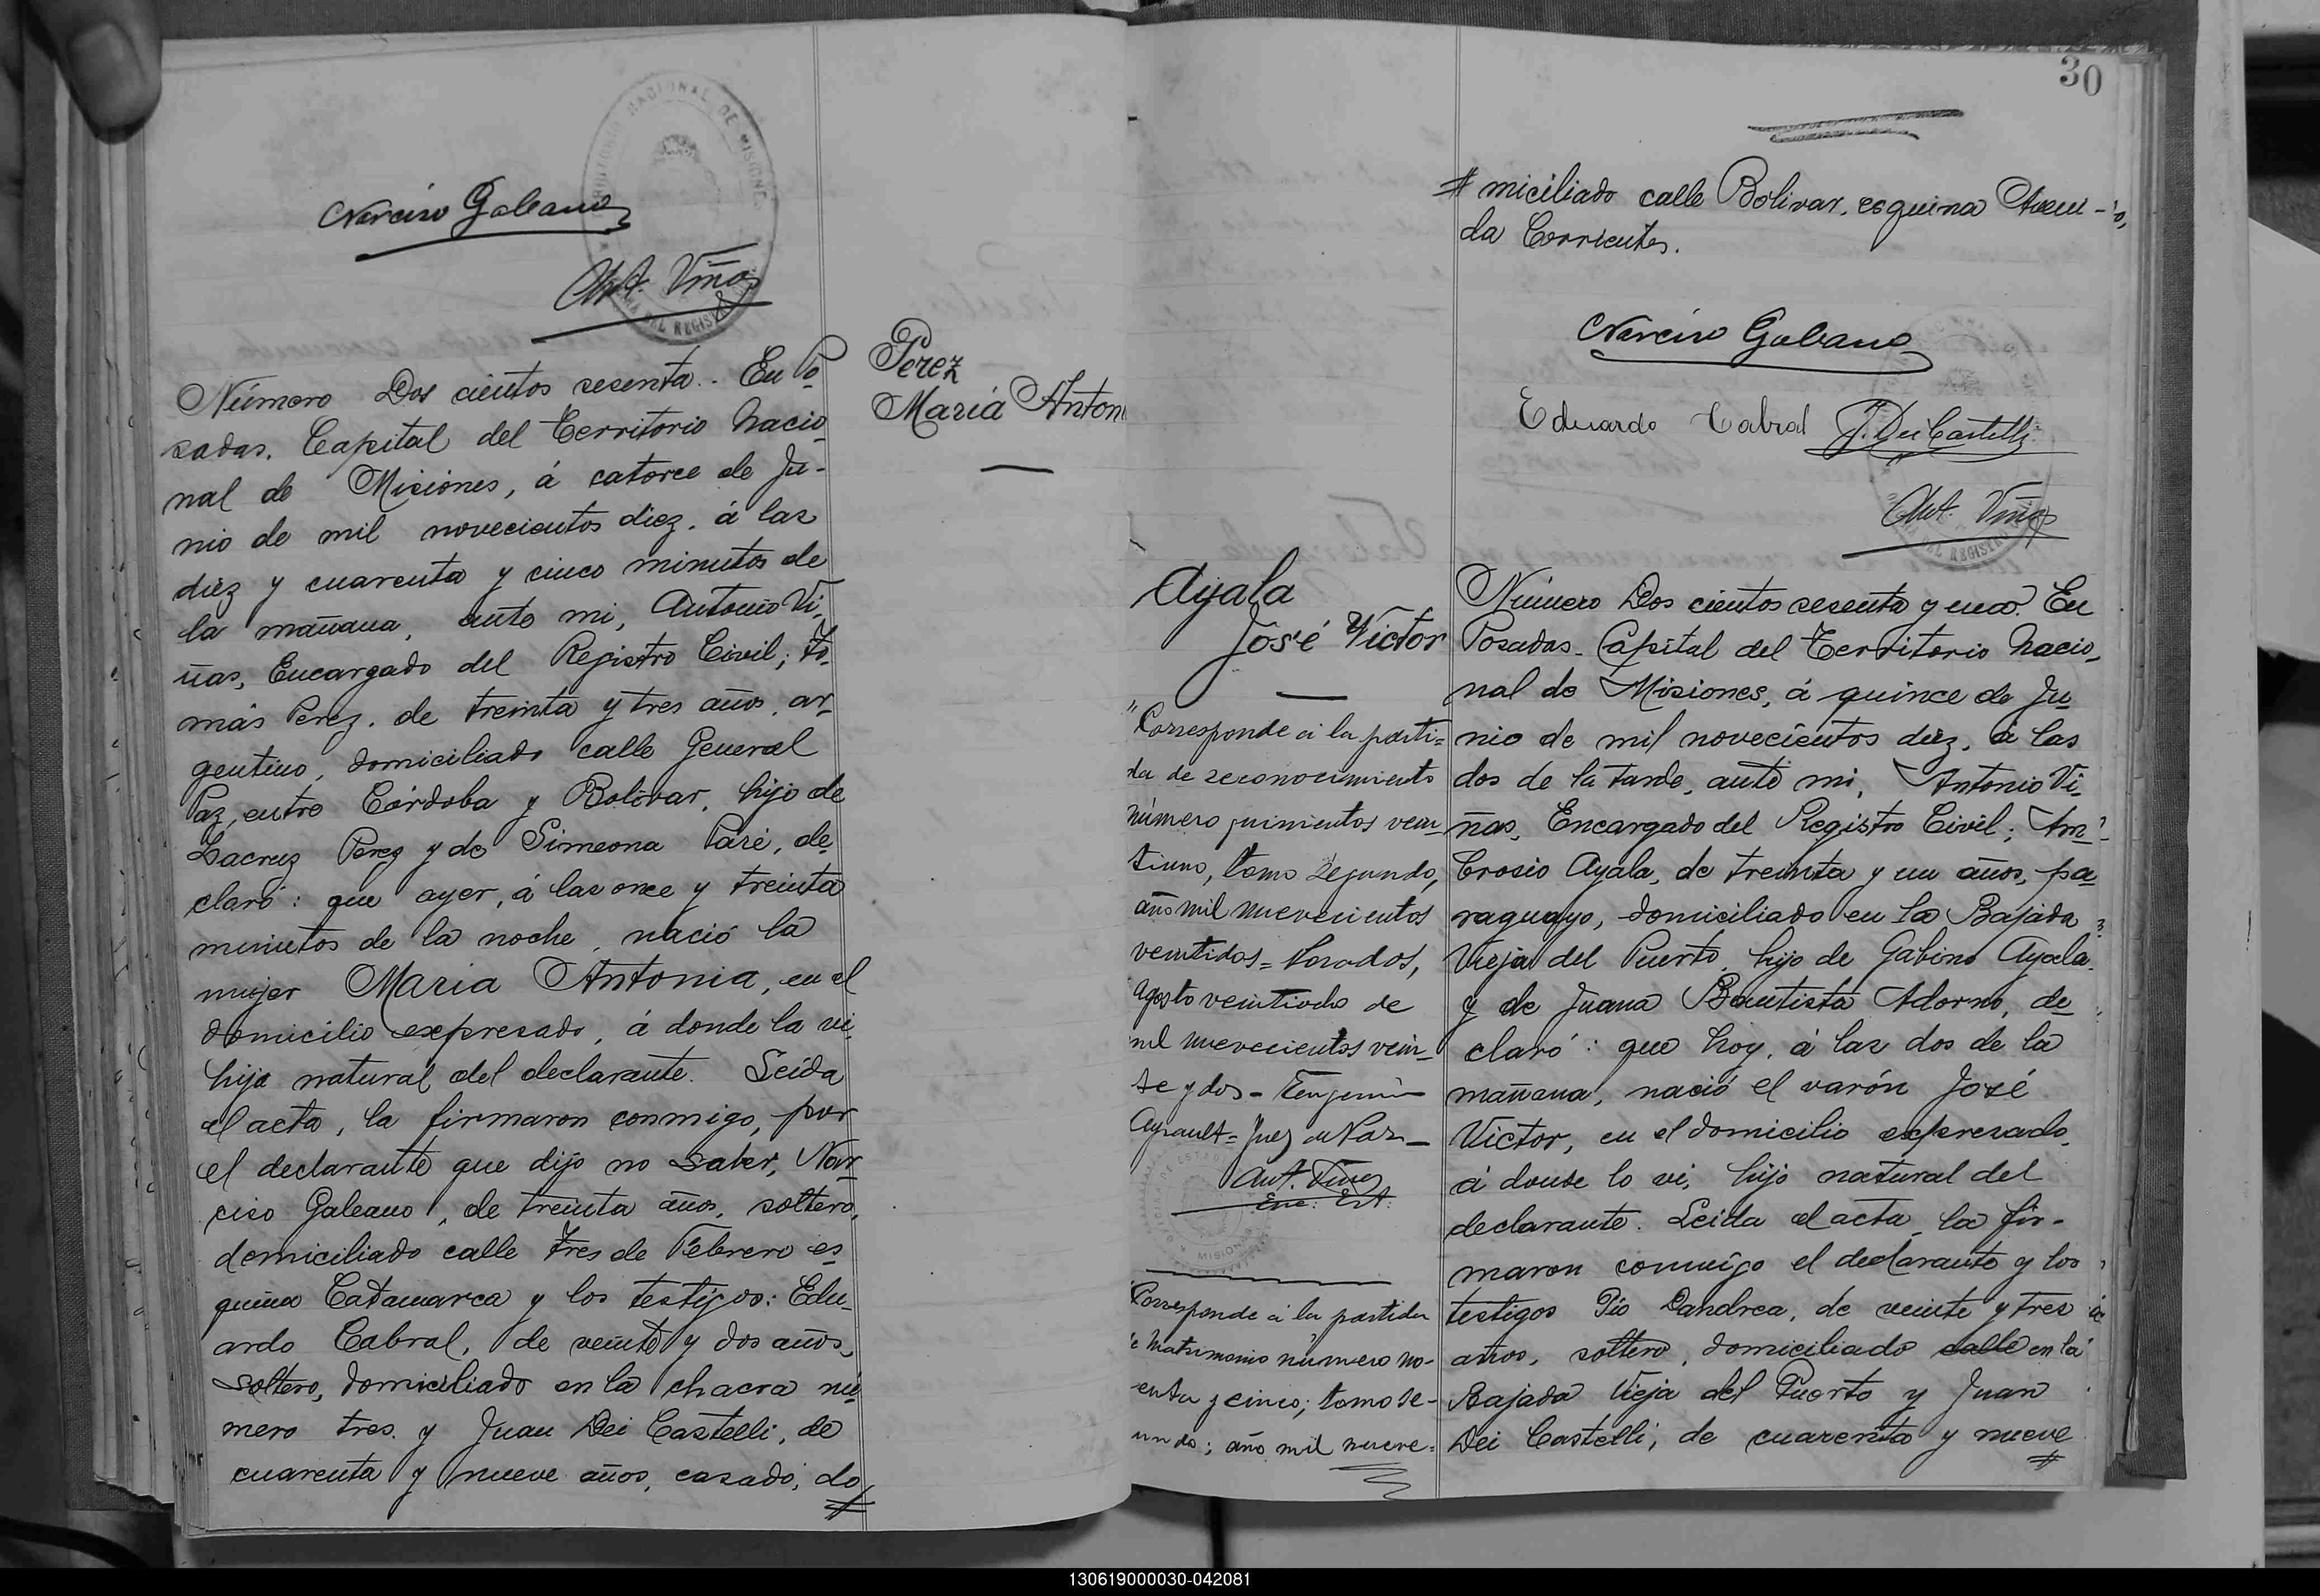 Narciso Galeano
Ant. Viñas
Número Dos cientos sesenta. En Po
sadas, Capital del Territorio Nacio
nal de Misiones, á catorce de Ju-
nio de mil novecientos diez, á las
diez y cuarenta y cinco minutos de
la mañana, ante mi, Antonio Vi
ñas, Encargado del Registro Civil; To
más Perez, de treinta y tres años, ar
gentino, domiciliado calle General
Paz, entre Córdoba y Bolivar, hijo de
Lacruz Perez y de Simeona Paré, de
claró: que ayer, á las once y treinta
minutos de la noche, nació la
mujer Maria Antonia, en el
domicilio expresado, á donde la vi
hija natural del declarante. Leída
el acta, la firmaron conmigo, por
el declarante que dijo no saber, Nar
ciso Galeano, de treinta años, soltero,
domiciliado calle Tres de Febrero es
quina Catamarca y los testigos: Edu
ardo Cabral, de veinte y dos años,
soltero, domiciliado en la chacra nú
mero tres y Juan Dei Castelli, de
cuarenta y nueve años, casado, do
#
Perez
Mariá Anton
30
# miciliado calle Bolivar, esquina Aveni-
da Corrientes.
Narciso Galeano
Eduardo Cabral J. Dei Castelli
Ant. Viñas
Ayala
José Victor
"Corresponde á la parti=
da de reconocimiento
número quinientos vein
tiuno, tomo segundo,
año mil nuevecientos
veintidos = Posadas,
Agosto veintiocho de
mil nuevecientos vein
te y dos -
Juez de Paz -
Ant. Viñas
Enc. Est.
Corresponde á la partida
e matrimonio número no-
enta y cinco; tomo se-
undo; año mil nueve=
Número Dos cientos sesenta y uno. En
Posadas, Capital del Territorio Nacio
nal de Misiones, á quince de Ju
nio de mil novecientos diez, á las
dos de la tarde, ante mi, Antonio Vi
ñas, Encargado del Registro Civil; Am
brosio Ayala, de treinta y un años, pa
raguayo, domiciliado en la Bajada
Vieja del Puerto, hijo de Gabino Ayala
y de Juana Bautista Adorno, de
claró: que hoy, á las dos de la
mañana, nació el varón José
Victor, en el domicilio expresado,
á donde lo vi, hijo natural del
declarante. Leida el acta, la fir-
maron conmigo el declarante y los
testigos Pio Dandrea, de veinte y tres
años, soltero, domiciliado calle en la
Bajada Vieja del Puerto y Juan
Dei Castelli, de cuarenta y nueve
#
130619000030-042081